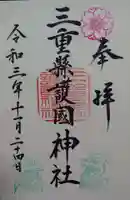 奉拝
三重縣護國神社
令和三年十一月二十四日